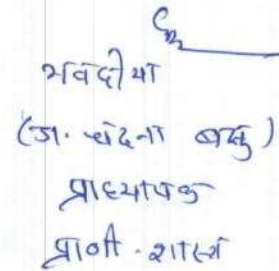 भवदीया
(डा. चंदना बसु)
प्राध्यापक
प्राणी-शास्त्र